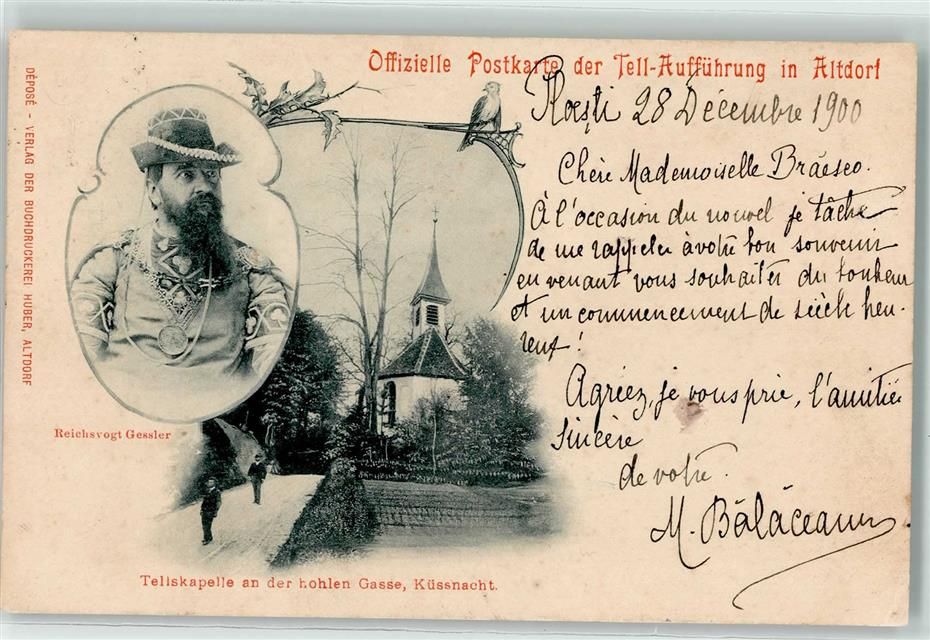 Offizielle Postkarte der Tell-Aufführung in Altdorf
28 Décembre 1900
Chère Mademoiselle Brăesco.
À l'occasion du nouvel je tâche
de me rappeler à votre bon souvenir
en venant vous souhaiter du bonheur
et un commencement de siècle heu-
reux!
Agréez, je vous prie, l'amitié
sincère
de votre
M. Bălăceanu
DÉPOSÉ - VERLAG DER BUCHDRUCKEREI HUBER, ALTDORF
Reichsvogt Gessler
Tellskapelle an der hohlen Gasse, Küssnacht.